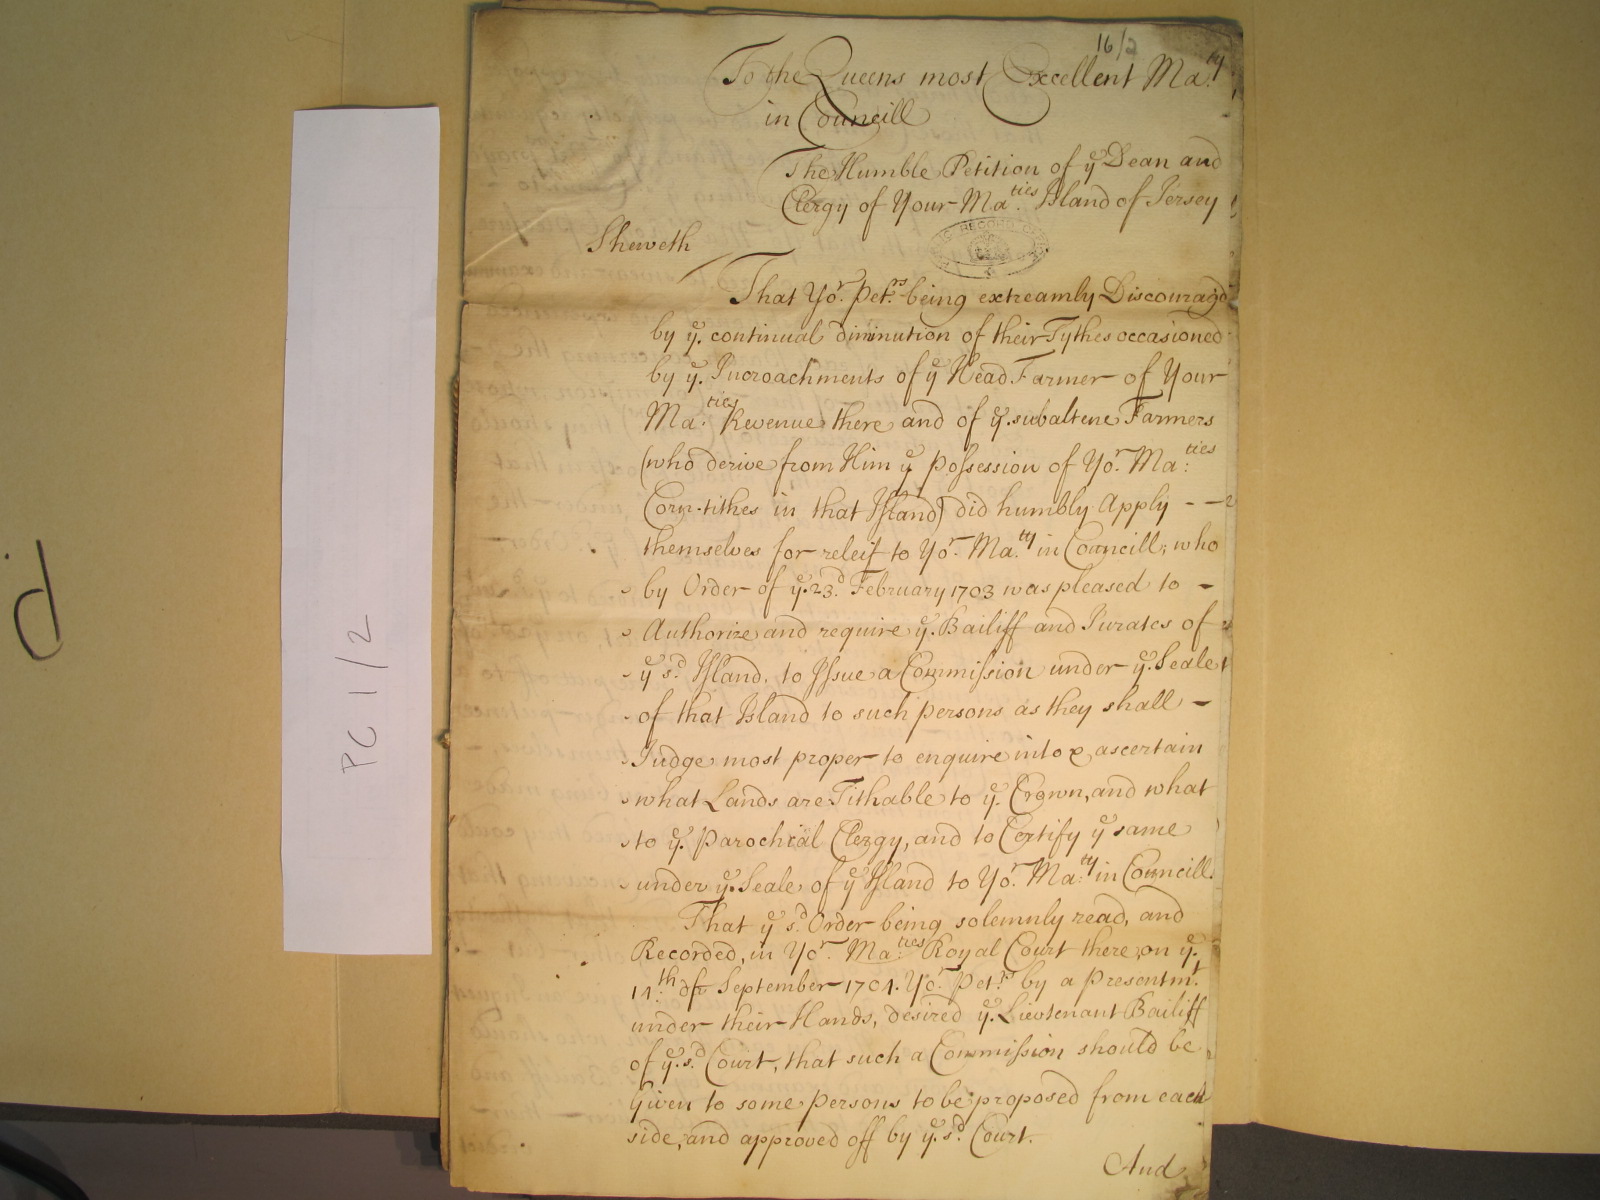 16/2
To the Queens most Excellent Ma.ty
in Councill
The Humble Petition of ye Dean and
Clergy of Your Ma.ties Island of Jersey
RECORD
Sheweth
That Yor. Petrs. being extreamly Discouragd
by ye. continual diminution of their Tythes occasioned
by ye. Incroachments of ye Head Farmer of Your
Ma.ties Revenue there and of ye. subalterne Farmers
(who derive from Him ye Possession of Yor. Ma:ties
Corn-tithes in that Island) did humbly Apply - -
themselves for releif to Yor. Ma.ty in Councill; who
by Order of ye. 23d. February 1703 was pleased to -
Authorize and require ye. Bailiff and Jurates of
ye sd. Island, to Issue a Commission under ye. Seale
of that Island to such persons as they shall -
Judge most proper to enquire into & ascertain
what Lands are Tithable to ye. Crown, and what
to ye. Parochial Clergy, and to Certify ye same
under ye. Seale of ye Island to Yor. Ma:ty in Councill.
That ye sd. Order being solemnly read, and
Recorded, in Yor. Ma:ties Royal Court there, on ye.
14th. of September 1704. Yor. Petrs. by a Presentmt.
under their Hands, desired ye. Lieutenant Bailiff
of ye. sd. Court, that such a Commission should be
Given to some persons to be proposed from each
side, and approved off by ye. sd. Court.
And
PC 1/2
d